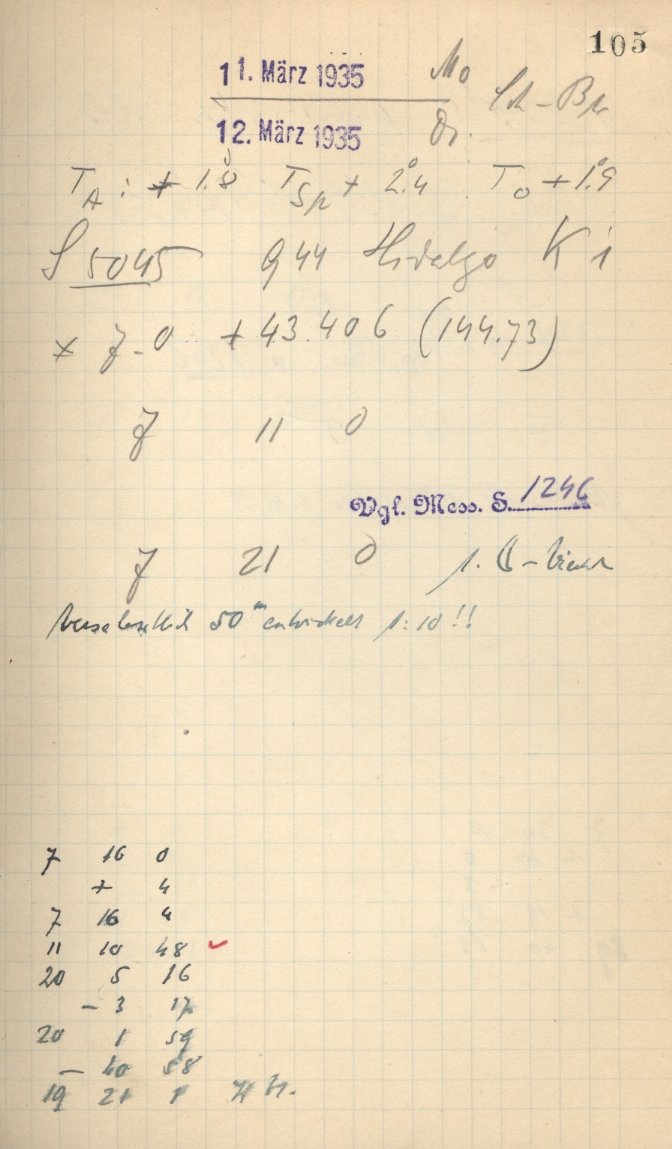 105
11. März 1935 Mo
12. März 1935 Di.
T_A : + 1°.8 T_Sp + 2°.4 T_O + 1°.9
S 5045 944 Hidalgo K 1
x 7.0 + 43.406 (144.73)
7 11 0
Vgl. Mess. S. 1246
7 21 0
50 m entwickelt 1:10 !!
7 16 0
+ 4
7 16 4
11 10 48 ✓
20 5 16
- 3 17
20 1 59
- 40 58
19 21 1